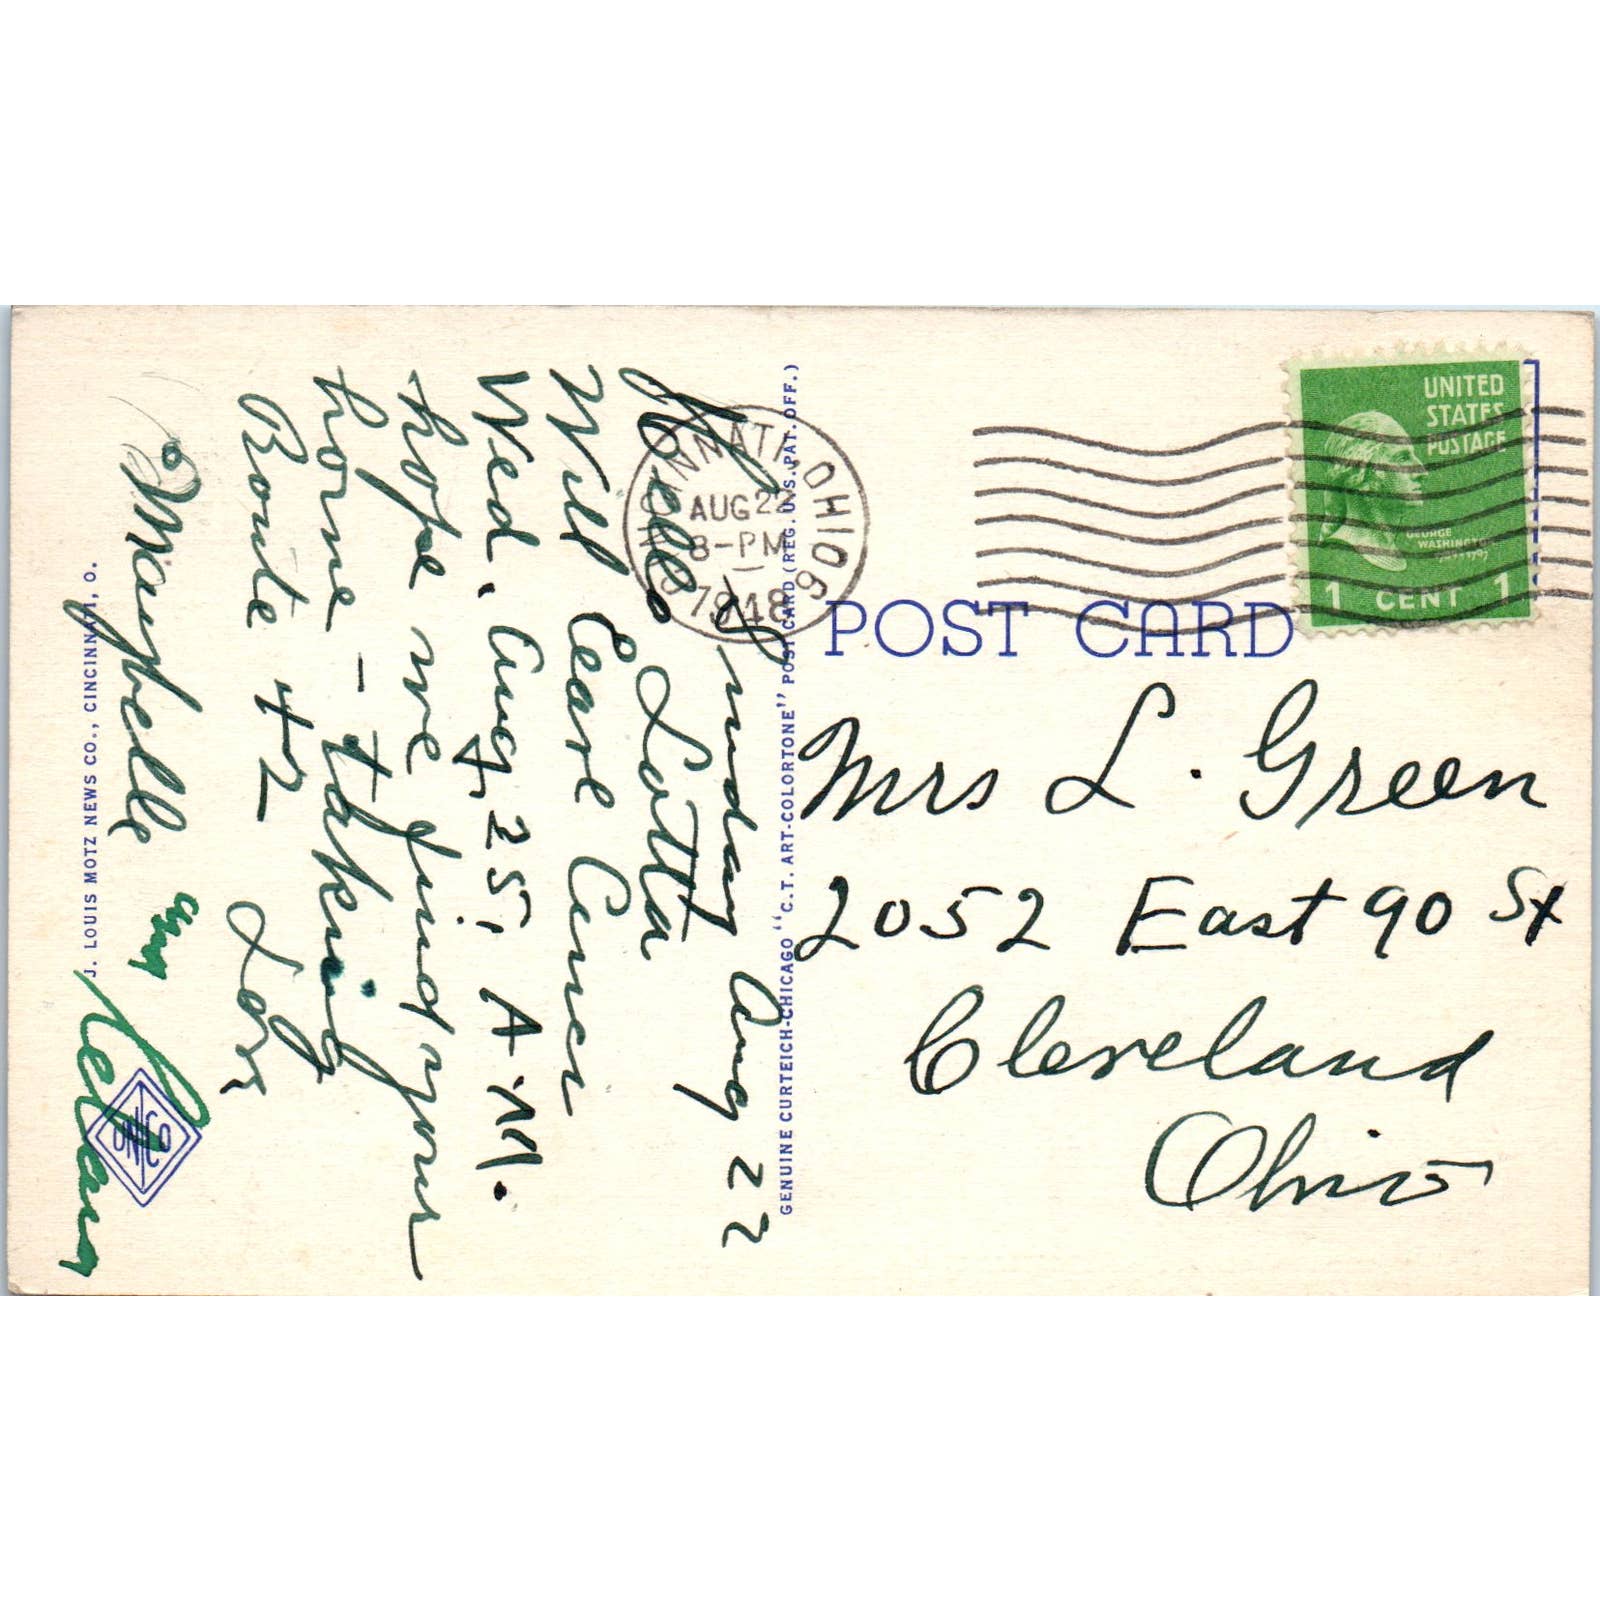 Sunday Aug 22
Hello Lotta
Will Leave Cincn
Wed. Aug, 25, A.M.
hope we find your
home - taking
Route 42
Maybelle
J. LOUIS MOTZ NEWS CO., CINCINNATI, O.
GENUINE CURTEICH-CHICAGO "C.T. ART-COLORTONE" POST CARD (REG. U.S. PAT. OFF.)
CINCINNATI, OHIO
AUG 22
8-PM
1948
UNITED
STATES
POSTAGE
GEORGE
WASHINGTON
1 CENT 1
POST CARD
Mrs L. Green
2052 East 90 St
Cleveland
Ohio